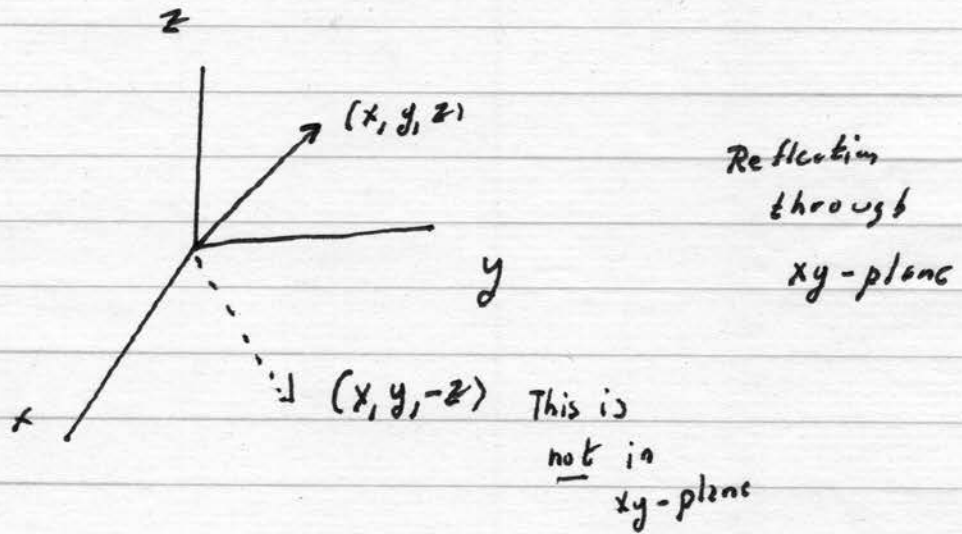 z
(x, y, z)
Reflection
through
xy-plane
y
x
(x, y, -z) This is
not in
xy-plane